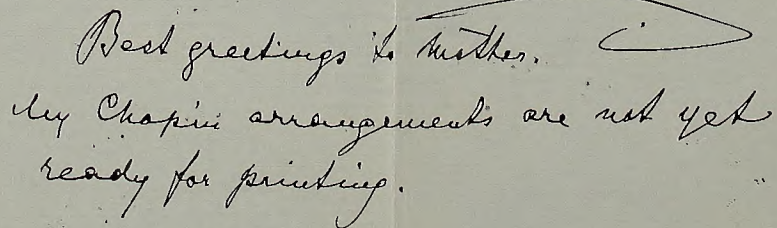 Best greetings to Mother.
My Chopin arrangements are not yet
ready for printing.